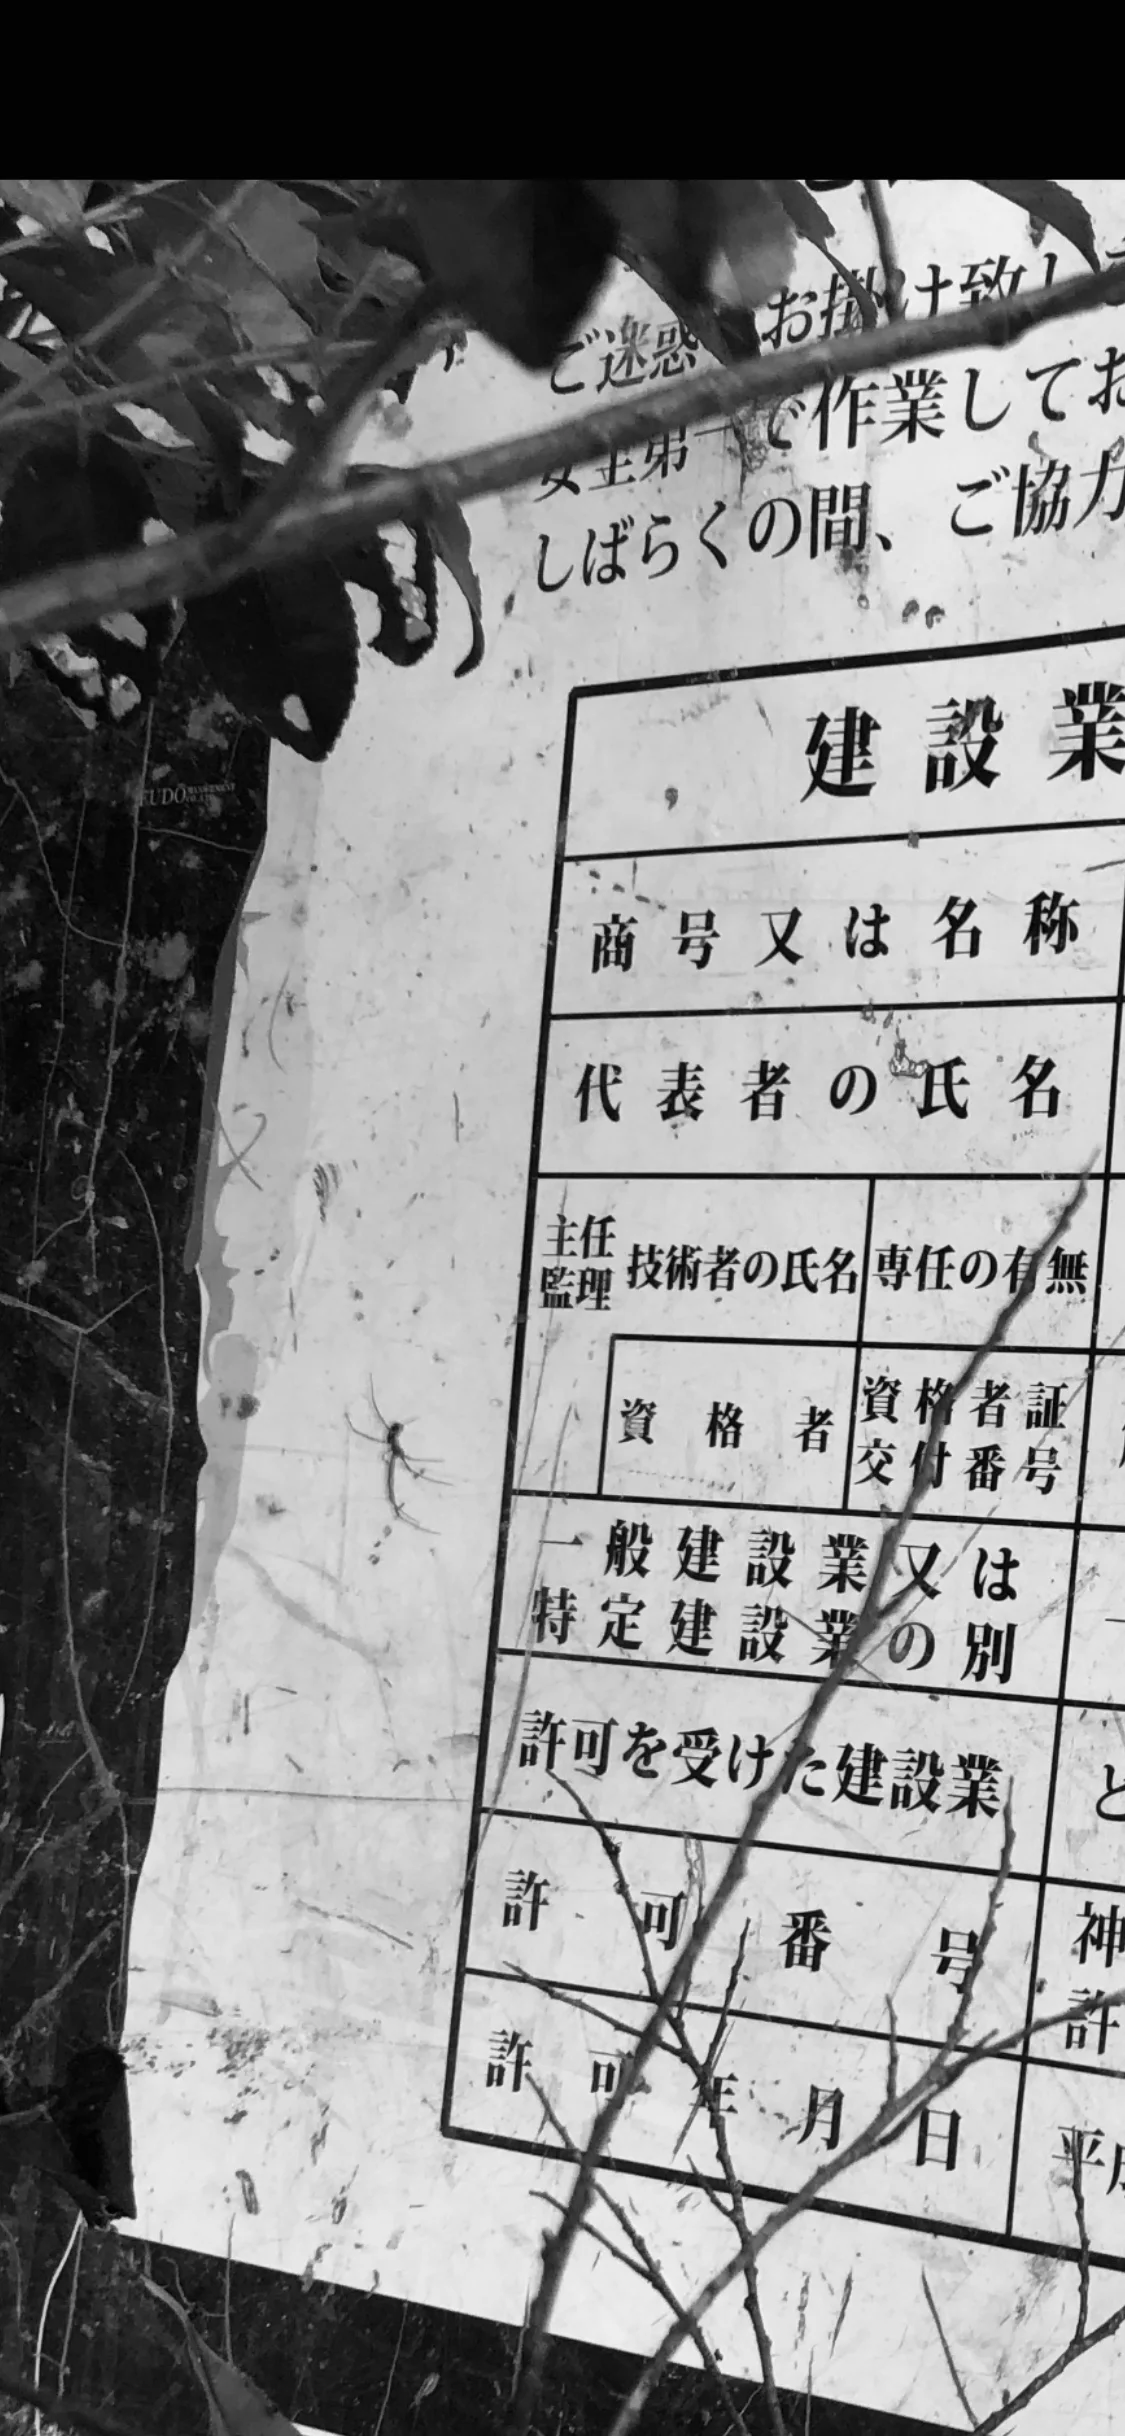 ご迷惑をお掛け致し
安全第一で作業してお
しばらくの間、ご協力
建設業
商号又は名称
代表者の氏名
主任
監理
技術者の氏名
専任の有無
資格者
資格者証
交付番号
一般建設業又は
特定建設業の別
許可を受けた建設業
と
許可番号
神
許
許可年月日
平成